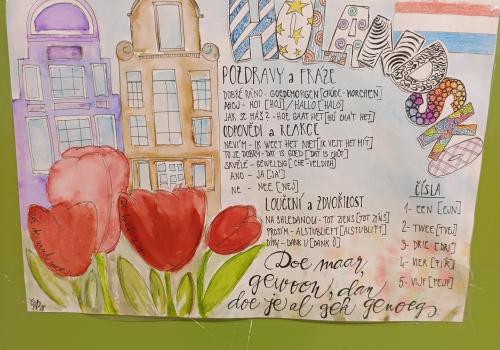 HOLANDSKO
POZDRAVY a FRÁZE
DOBRÉ RÁNO - GOEDEMORGEN [CHŮDE-MORCHEN]
AHOJ - HOI [HOJ] / HALLO [HALO]
JAK SE MÁŠ? - HOE GAAT HET [HŮ CHÁT HET]
ODPOVĚDI a REAKCE
NEVÍM - IK WEET HET NIET [IK VEJT HET NÍT]
TO JE DOBRÝ - DAT IS GOED [DAT IS CHŮT]
SKVĚLÉ - GEWELDIG [CHE-VELDICH]
ANO - JA [JA]
NE - NEE [NEJ]
LOUČENÍ a ZDVOŘILOST
NA SHLEDANOU - TOT ZIENS [TOT ZÍNS]
PROSÍM - ALSTUBLIEFT [ALSTUBLÍFT]
DÍKY - DANK U [DANK Ü]
ČÍSLA
1 - EEN [EJN]
2 - TWEE [TVEJ]
3 - DRIE [DRÍ]
4 - VIER [FÍR]
5 - VIJF [FEJF]
Doe maar
gewoon, dan
doe je al gek genoeg.